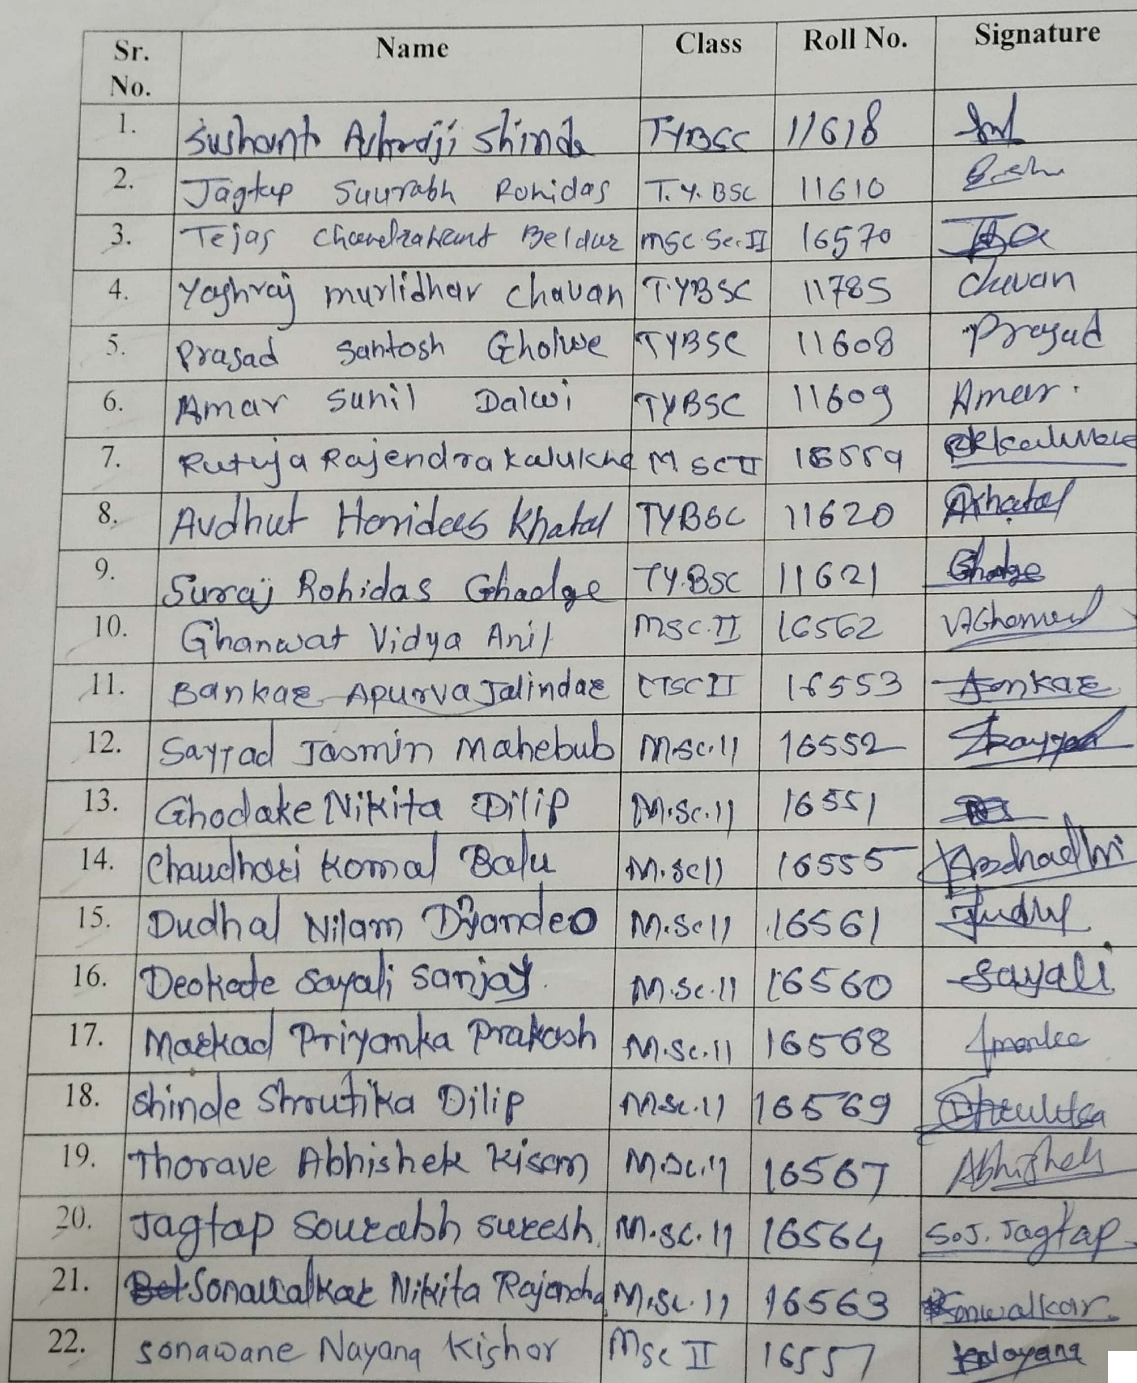 Sr. No. Name Class Roll No. Signature
1. Sushant Shinde TYBSC 11618
2. Jagtap Saurabh Rohidas T.Y. BSC 11610
3. Tejas Chandrakant Beldar MSC Sc. II 16570
4. Yashraj murlidhar chavan T.YBSC 11785 chavan
5. Prasad Santosh Gholwe TYBSC 11608 Prasad
6. Amar Sunil Dalwi TYBSC 11609 Amar.
7. Rutuja Rajendra Kalukhe M SCII 16559
8. Avdhut Haridas Khatal TYBSC 11620 AKhatal
9. Suraj Rohidas Ghadge TY.BSC 11621
10. Ghanwat Vidya Anil MSC.II 16562
11. Bankar Apurva Jalindar MSCII 16553
12. Sayyad Jasmin Mahebub M.Sc.II 16552
13. Ghodake Nikita Dilip M.Sc.II 16551
14. Chaudhari Komal Balu M.ScII 16555
15. Dudhal Nilam Dnyandeo M.ScII 16561
16. Deokate Sayali Sanjay. M.Sc.II 16560 Sayali
17. Markad Priyanka Prakash M.Sc.II 16568
18. Shinde Shrutika Dilip M.Sc.II 16569
19. Thorave Abhishek Kisan M.Sc.II 16567 Abhishek
20. Jagtap Sourabh Suresh. M.SC.II 16564 S.J. Jagtap
21. Sonawalkar Nikita Rajendra M.Sc.II 16563 Sonwalkar
22. Sonawane Nayana Kishor MSc II 16557 Nayana